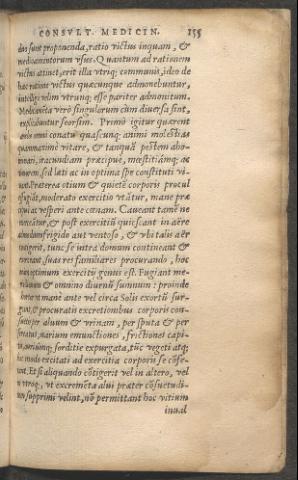 CONSVLT. MEDICIN. 155
duo sunt proponenda, ratio victus inquam, &
medicamentorum vsus. Quantum ad rationem
victus attinet, erit illa vtriq; communis, ideo de
hac ratione victus quæcunque admonebuntur,
intellige velim vtrunq; esse pariter admonitum.
Medicamēta verò singularum cùm diuersa sint,
explicabuntur seorsim. Primò igitur quærent
omni conatu quascunq; animi molestias
quammaximè vitare, & tanquā pestem abo-
minari, iracundiam præcipuè, mœstitiámq; ac
sed læti ac in optima spe constituti vi-
Præterea otium & quietē corporis procul
moderato exercitio vtātur, mane præ
ac vesperi ante cœnam. Caueant tamē ne
& post exercitiū quiescant in aëre
frigido aut ventoso, & vbi talis aër
contigerit, tunc se intra domum contineant &
suas res familiares procurando, hoc
optimum exercitij genus est. Fugiant me-
& omnino diurnū somnum: proinde
mane ante vel circa Solis exortū sur-
& procuratis excretionibus corporis con-
per aluum & vrinam, per sputa & per
narium emunctiones, frictiones capi-
omniámq; sorditie expurgata, tūc vegeti atq;
modo excitati ad exercitia corporis se cōfe-
Et si aliquando cōtigerit vel in altero, vel
in vtroq;, vt excremēta alui præter cōsuetudi-
supprimi velint, nō permittant hoc vitium